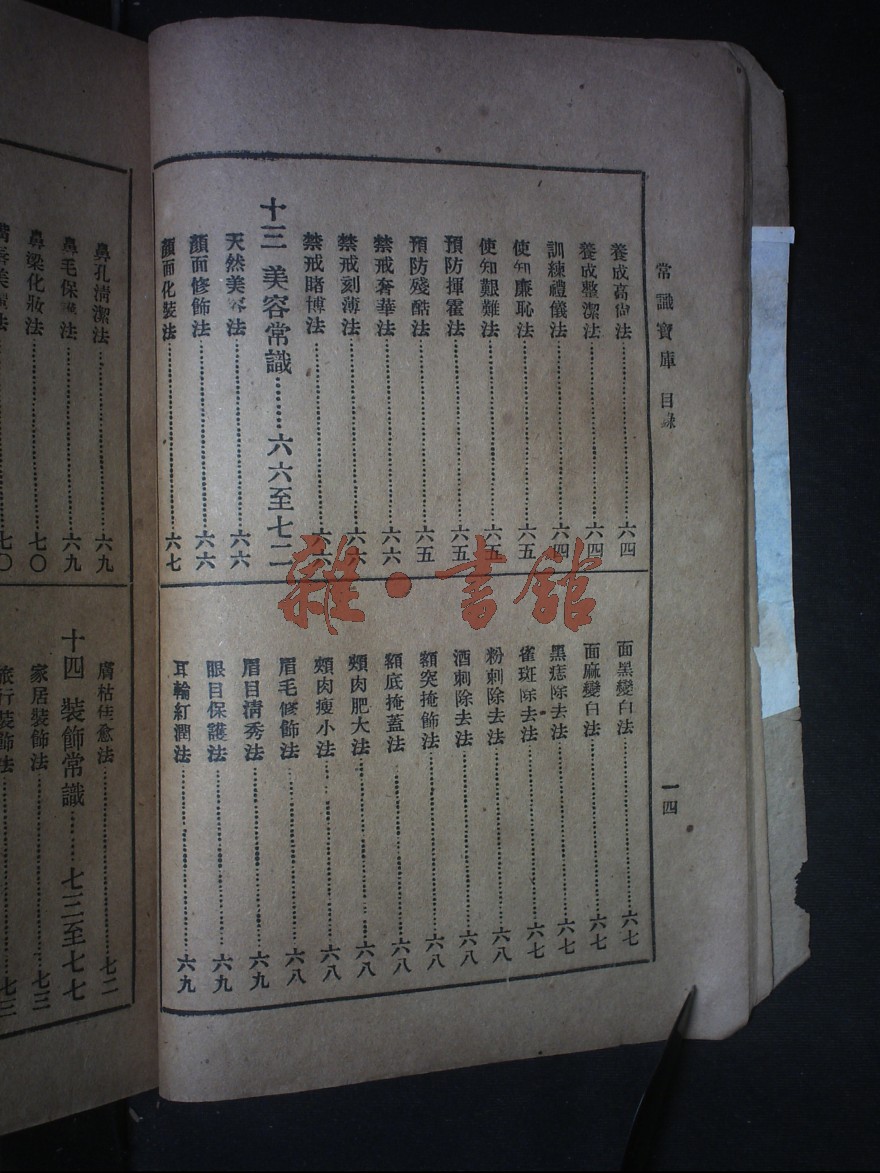 常識寶庫 目錄
一四
養成高尚法……六四
養成整潔法……六四
訓練禮儀法……六四
使知廉恥法……六五
使知艱難法……六五
預防揮霍法……六五
預防殘酷法……六五
禁戒奢華法……六六
禁戒刻薄法……六六
禁戒賭博法……六六
十三 美容常識……六六至七二
天然美容法……六六
顏面修飾法……六六
顏面化裝法……六七
面黑變白法……六七
面麻變白法……六七
黑痣除去法……六七
雀斑除去法……六七
粉刺除去法……六八
酒刺除去法……六八
額突掩飾法……六八
額底掩蓋法……六八
頰肉肥大法……六八
頰肉瘦小法……六八
眉毛修飾法……六八
眉目清秀法……六九
眼目保護法……六九
耳輪紅潤法……六九
鼻孔清潔法……六九
鼻毛保護法……六九
鼻梁化妝法……七〇
七〇
膚枯使愈法……七二
十四 裝飾常識……七三至七七
家居裝飾法……七三
旅行裝飾法……七三
雜·書館